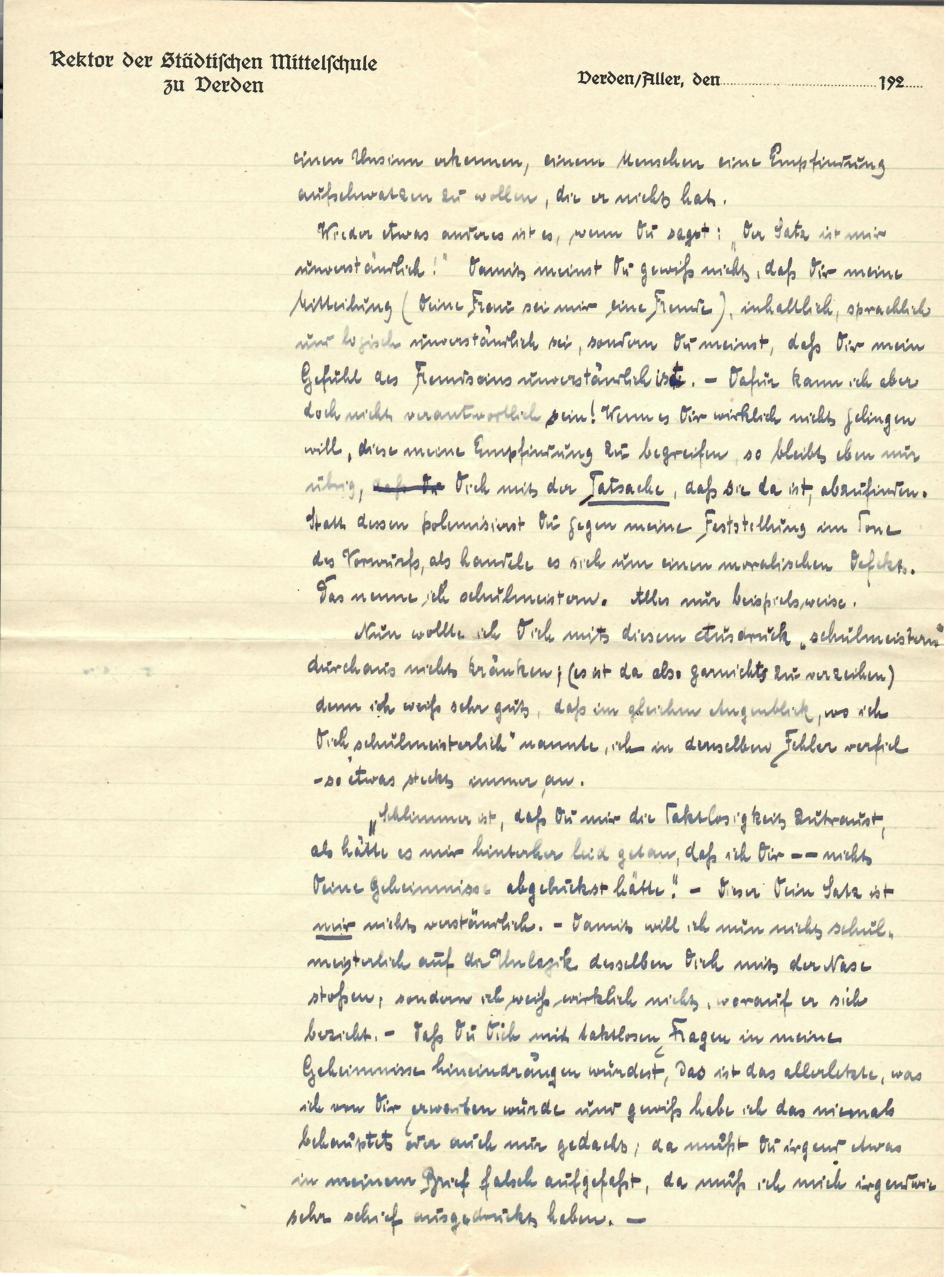 Rektor der Städtischen Mittelschule
zu Verden
Verden/Aller, den 192
einen Unsinn erkennen, einem Menschen eine Empfindung
aufschwatzen zu wollen, die er nicht hat.
Wieder etwas anderes ist es, wenn Du sagst: „Der Satz ist mir
unverständlich!" Damit meinst Du gewiß nicht, daß Dir meine
Mitteilung (Deine Frau sei mir eine Fremde), inhaltlich, sprachlich
und logisch unverständlich sei, sondern Du meinst, daß Dir mein
Gefühl des Fremdseins unverständlich ist. – Dafür kann ich aber
doch nicht verantwortlich sein! Wenn es Dir wirklich nicht gelingen
will, diese meine Empfindung zu begreifen, so bleibt eben nur
übrig, daß Du Dich mit der Tatsache, daß sie da ist, abzufinden.
Statt dessen polemisierst Du gegen meine Feststellung im Tone
des Vorwurfs, als handele es sich um einen moralischen Defekt.
Das nenne ich schulmeistern. Alles nur beispielsweise.
Nun wollte ich Dich mit diesem Ausdruck „schulmeistern"
durchaus nicht kränken; (es ist da also garnichts zu verzeihen)
denn ich weiß sehr gut, daß im gleichen Augenblick, wo ich
Dich „schulmeisterlich" nannte, ich in denselben Fehler verfiel
– so etwas steckt immer an.
„Schlimmer ist, daß Du mir die Taktlosigkeit zutraust,
als hätte es mir hinterher leid getan, daß ich Dir –– nicht
Deine Geheimnisse abgeluckst hätte." – Dieser Dein Satz ist
mir nicht verständlich. – Damit will ich nun nicht schul-
meisterlich auf die Unlogik desselben Dich mit der Nase
stoßen, sondern ich weiß wirklich nicht, worauf er sich
bezieht. – Daß Du Dich mit taktlosen Fragen in meine
Geheimnisse hineindrängen würdest, das ist das allerletzte, was
ich von Dir erwarten würde und gewiß habe ich das niemals
behauptet oder auch nur gedacht; da mußt Du irgend etwas
in meinem Brief falsch aufgefaßt, da muß ich mich irgendwie
sehr schief ausgedrückt haben. —